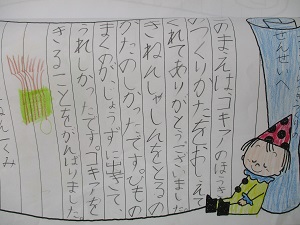 せんせいへ
のまえは、コキアのほうき
のつくりかたをおしえて
くれてありがとうございました。
きねんしゃしんをとるの
がたのしかったです。ひもの
まくのがじょうずにできて、
うれしかったです。コキアを
きることをがんばりました。
ねんくみ